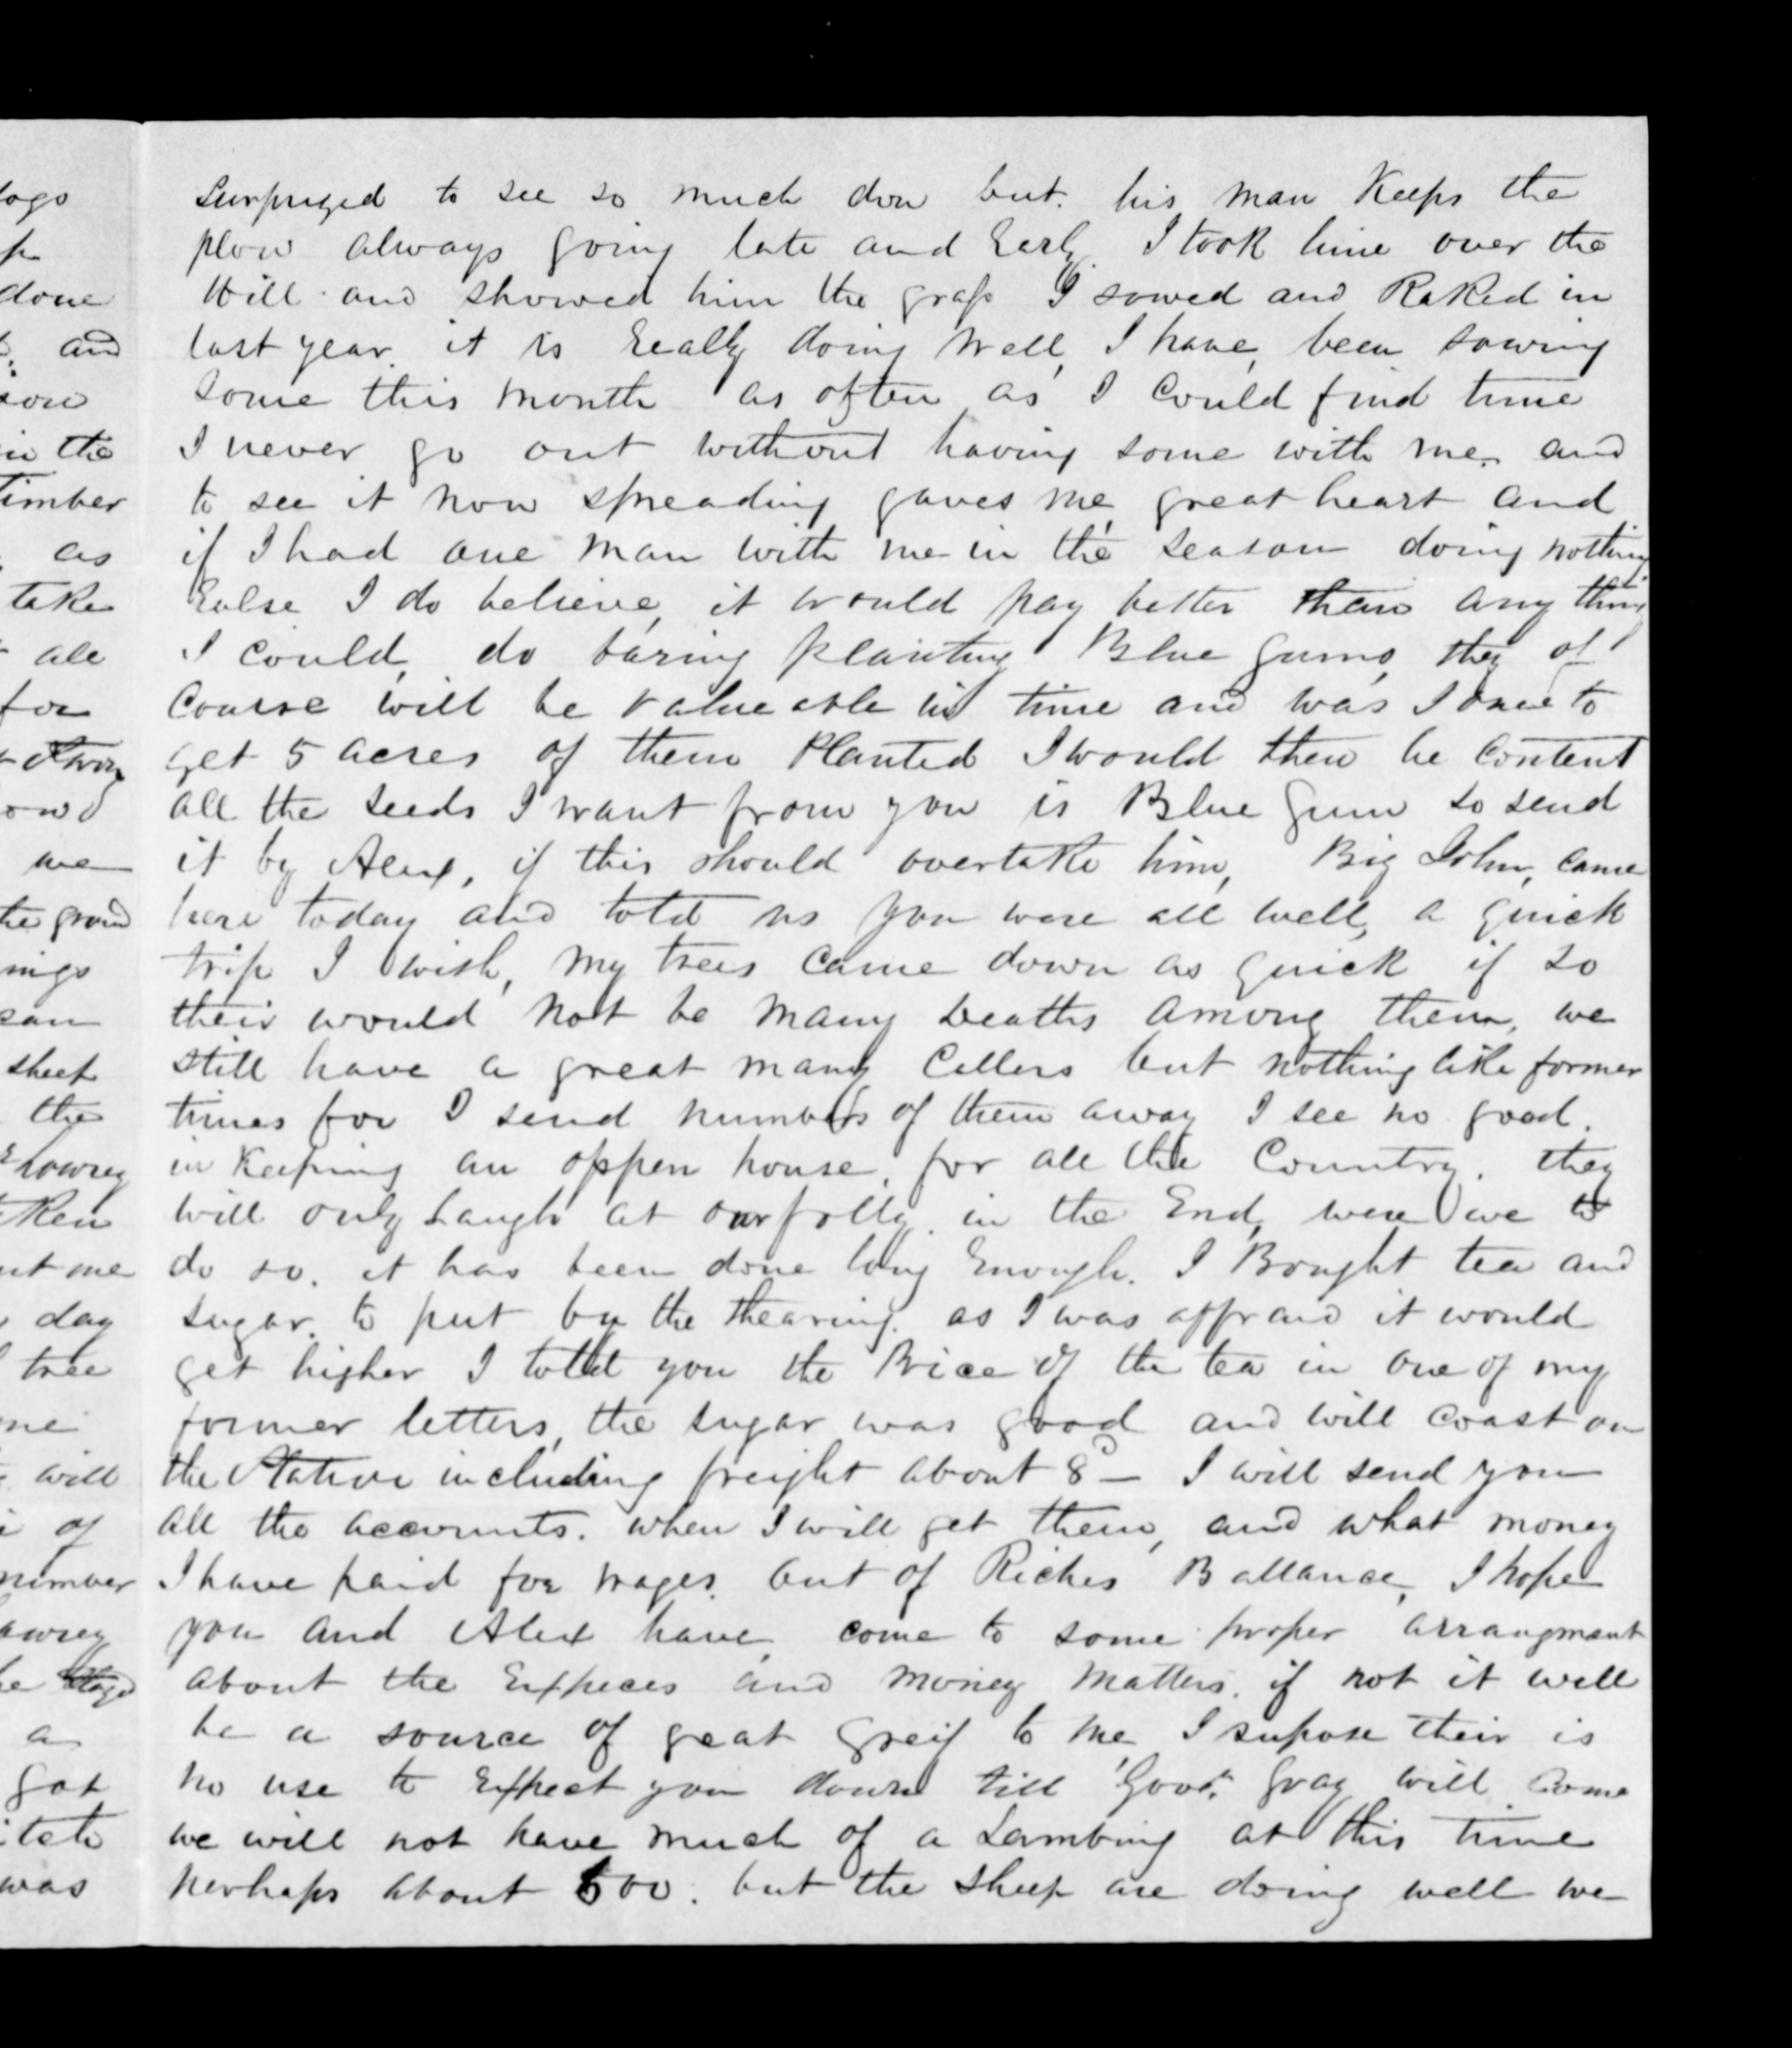 surprized to see so much don but his man Keeps the
plow always going late and Early I took him over the
Hill and showed him the grass I sowed and Raked in
last year it is Really doing well, I have been sowing
some this month as often as I could find time
I never go out without having some with me and
to see it now spreading gaves me great heart and
if I had one man with me in the season doing nothing
Ealse I do believe, it would pay better than any thing
I could do baring planting Blue gums, they of
course will be valueable in time and was I to
get 5 acres of them Planted I would then be content
all the seeds I want from you is Blue gum so send
it by Alex, if this should overtake him, Big John, came
here today and told us you were all well, a quick
trip I wish, my trees came down as quick if so
their would not be many Deaths among them, we
still have a great many Callers but nothing like former
times for I send numbers of them away I see no good.
in Keeping an oppen house, for all the Country. they
will only Laugh at our folly in the End, were we to
do so. it has been done long Enough. I Bought tea and
sugar to put by the Shearing. as I was affraid it would
get higher I told you the Price of the tea in one of my
former letters, the sugar was good and will coast on
the Station including freight about 8d — I will send you
all the accounts. when I will get them, and what money
I have paid for wages out of Riches Ballance, I hope
you and Alex have come to some proper arrangment
about the Expeces and money matters. if not it will
be a source of geat greif to me I supose their is
no use to Expect you down till Govr. gray will Come
we will not have much of a Lambing at this time
perhaps about 600. but the sheep are doing well we